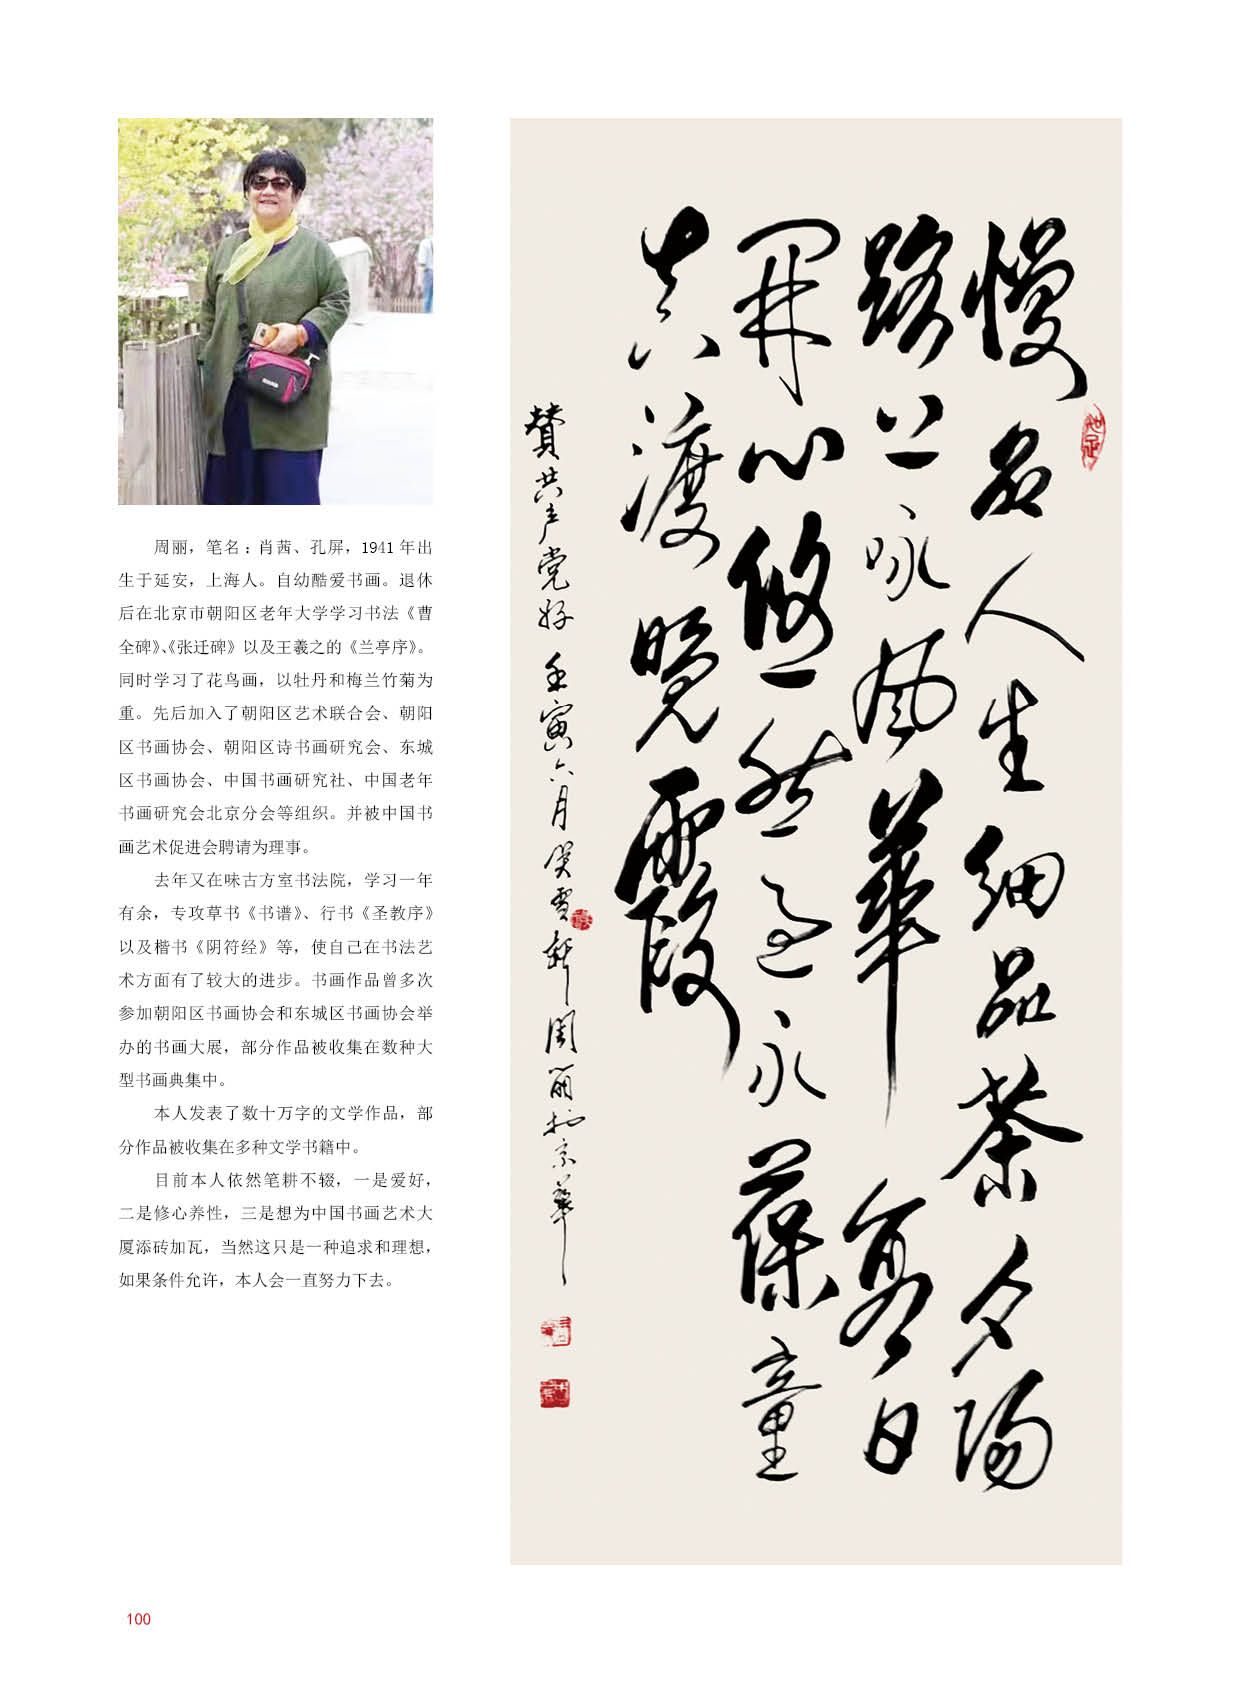 周丽，笔名：肖茜、孔屏，1941 年出
生于延安，上海人。自幼酷爱书画。退休
后在北京市朝阳区老年大学学习书法《曹
全碑》、《张迁碑》以及王羲之的《兰亭序》。
同时学习了花鸟画，以牡丹和梅兰竹菊为
重。先后加入了朝阳区艺术联合会、朝阳
区书画协会、朝阳区诗书画研究会、东城
区书画协会、中国书画研究社、中国老年
书画研究会北京分会等组织。并被中国书
画艺术促进会聘请为理事。
去年又在味古方室书法院，学习一年
有余，专攻草书《书谱》、行书《圣教序》
以及楷书《阴符经》等，使自己在书法艺
术方面有了较大的进步。书画作品曾多次
参加朝阳区书画协会和东城区书画协会举
办的书画大展，部分作品被收集在数种大
型书画典集中。
本人发表了数十万字的文学作品，部
分作品被收集在多种文学书籍中。
目前本人依然笔耕不辍，一是爱好，
二是修心养性，三是想为中国书画艺术大
厦添砖加瓦，当然这只是一种追求和理想，
如果条件允许，本人会一直努力下去。
慢步人生细品茶夕陽
路上咏风華每日
開心悠然过永葆童
真渡晚霞
賛共产党好 壬寅六月 雪軒周丽於京華
知足
100